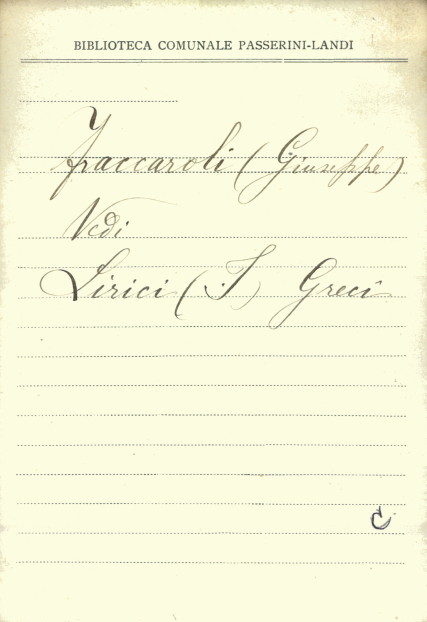 BIBLIOTECA COMUNALE PASSERINI-LANDI
Fraccaroli (Giuseppe)
Vedi
Lirici (I) Greci
C